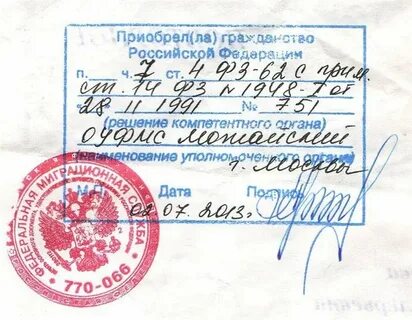 Приобрел(ла) гражданство
Российской Федерации
п. ч. 7 ст. 4 ФЗ-62 с прим.
ст. 14 ФЗ № 1948-I от
28 11 1991 № 751
(решение компетентного органа)
ОУФМС Можайский
(наименование уполномоченного органа)
г. Москвы
М.П. Дата Подпись
02.07.2013г.
ФЕДЕРАЛЬНАЯ МИГРАЦИОННАЯ СЛУЖБА
770-066